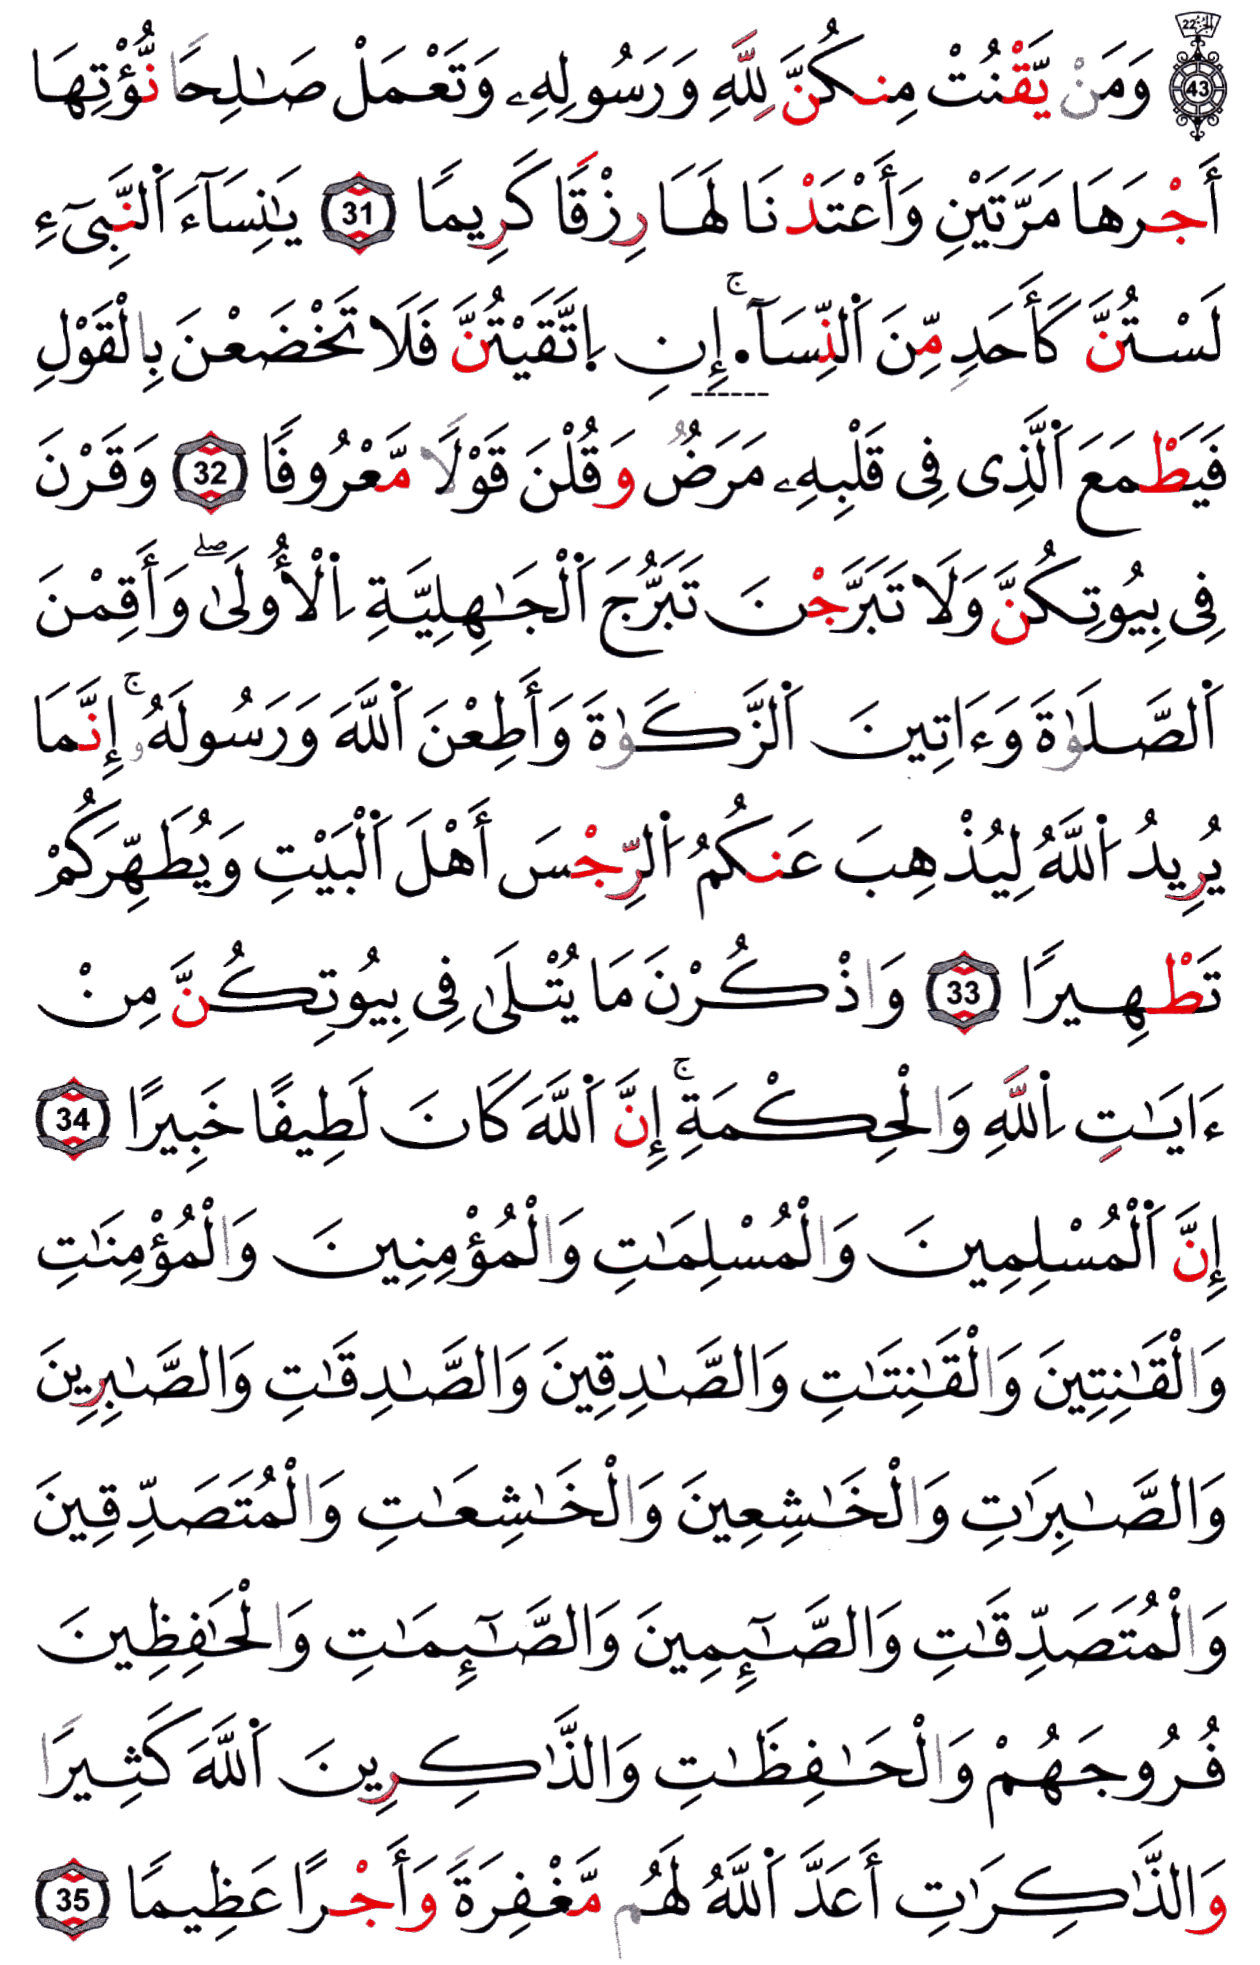 الجزء 22
43 وَمَنْ يَّقْنُتْ مِنكُنَّ لِلَّهِ وَرَسُولِهِۦ وَتَعْمَلْ صَـٰلِحًا نُّؤْتِهَا
أَجْرَهَا مَرَّتَيْنِ وَأَعْتَدْنَا لَهَا رِزْقًا كَرِيمًا 31 يَـٰنِسَآءَ اَ۬لنَّبِىٓءِ
لَسْتُنَّ كَأَحَدٍ مِّنَ اَ۬لنِّسَآءِ ۚ إِنِ اِ۪تَّقَيْتُنَّ فَلَا تَخْضَعْنَ بِالْقَوْلِ
فَيَطْمَعَ اَ۬لَّذِى فِى قَلْبِهِۦ مَرَضٌ وَقُلْنَ قَوْلًا مَّعْرُوفًا 32 وَقَرْنَ
فِى بِيُوتِكُنَّ وَلَا تَبَرَّجْنَ تَبَرُّجَ اَ۬لْجَـٰهِلِيَّةِ اِ۬لْأُولَىٰ ۖ وَأَقِمْنَ
اَ۬لصَّلَوٰةَ وَءَاتِينَ اَ۬لزَّكَوٰةَ وَأَطِعْنَ اَ۬للَّهَ وَرَسُولَهُۥ ۚ إِنَّمَا
يُرِيدُ اُ۬للَّهُ لِيُذْهِبَ عَنكُمُ اُ۬لرِّجْسَ أَهْلَ اَ۬لْبَيْتِ وَيُطَهِّرَكُمْ
تَطْهِيرًا 33 وَاذْكُرْنَ مَا يُتْلَىٰ فِى بِيُوتِكُنَّ مِنْ
ءَايَـٰتِ اِ۬للَّهِ وَالْحِكْمَةِ ۚ إِنَّ اَ۬للَّهَ كَانَ لَطِيفًا خَبِيرًا 34
إِنَّ اَ۬لْمُسْلِمِينَ وَالْمُسْلِمَـٰتِ وَالْمُؤْمِنِينَ وَالْمُؤْمِنَـٰتِ
وَالْقَـٰنِتِينَ وَالْقَـٰنِتَـٰتِ وَالصَّـٰدِقِينَ وَالصَّـٰدِقَـٰتِ وَالصَّـٰبِرِينَ
وَالصَّـٰبِرَٰتِ وَالْخَـٰشِعِينَ وَالْخَـٰشِعَـٰتِ وَالْمُتَصَدِّقِينَ
وَالْمُتَصَدِّقَـٰتِ وَالصَّـٰٓئِمِينَ وَالصَّـٰٓئِمَـٰتِ وَالْحَـٰفِظِينَ
فُرُوجَهُمْ وَالْحَـٰفِظَـٰتِ وَالذَّٰكِرِينَ اَ۬للَّهَ كَثِيرًا
وَالذَّٰكِرَٰتِ أَعَدَّ اَ۬للَّهُ لَهُم مَّغْفِرَةً وَأَجْرًا عَظِيمًا 35